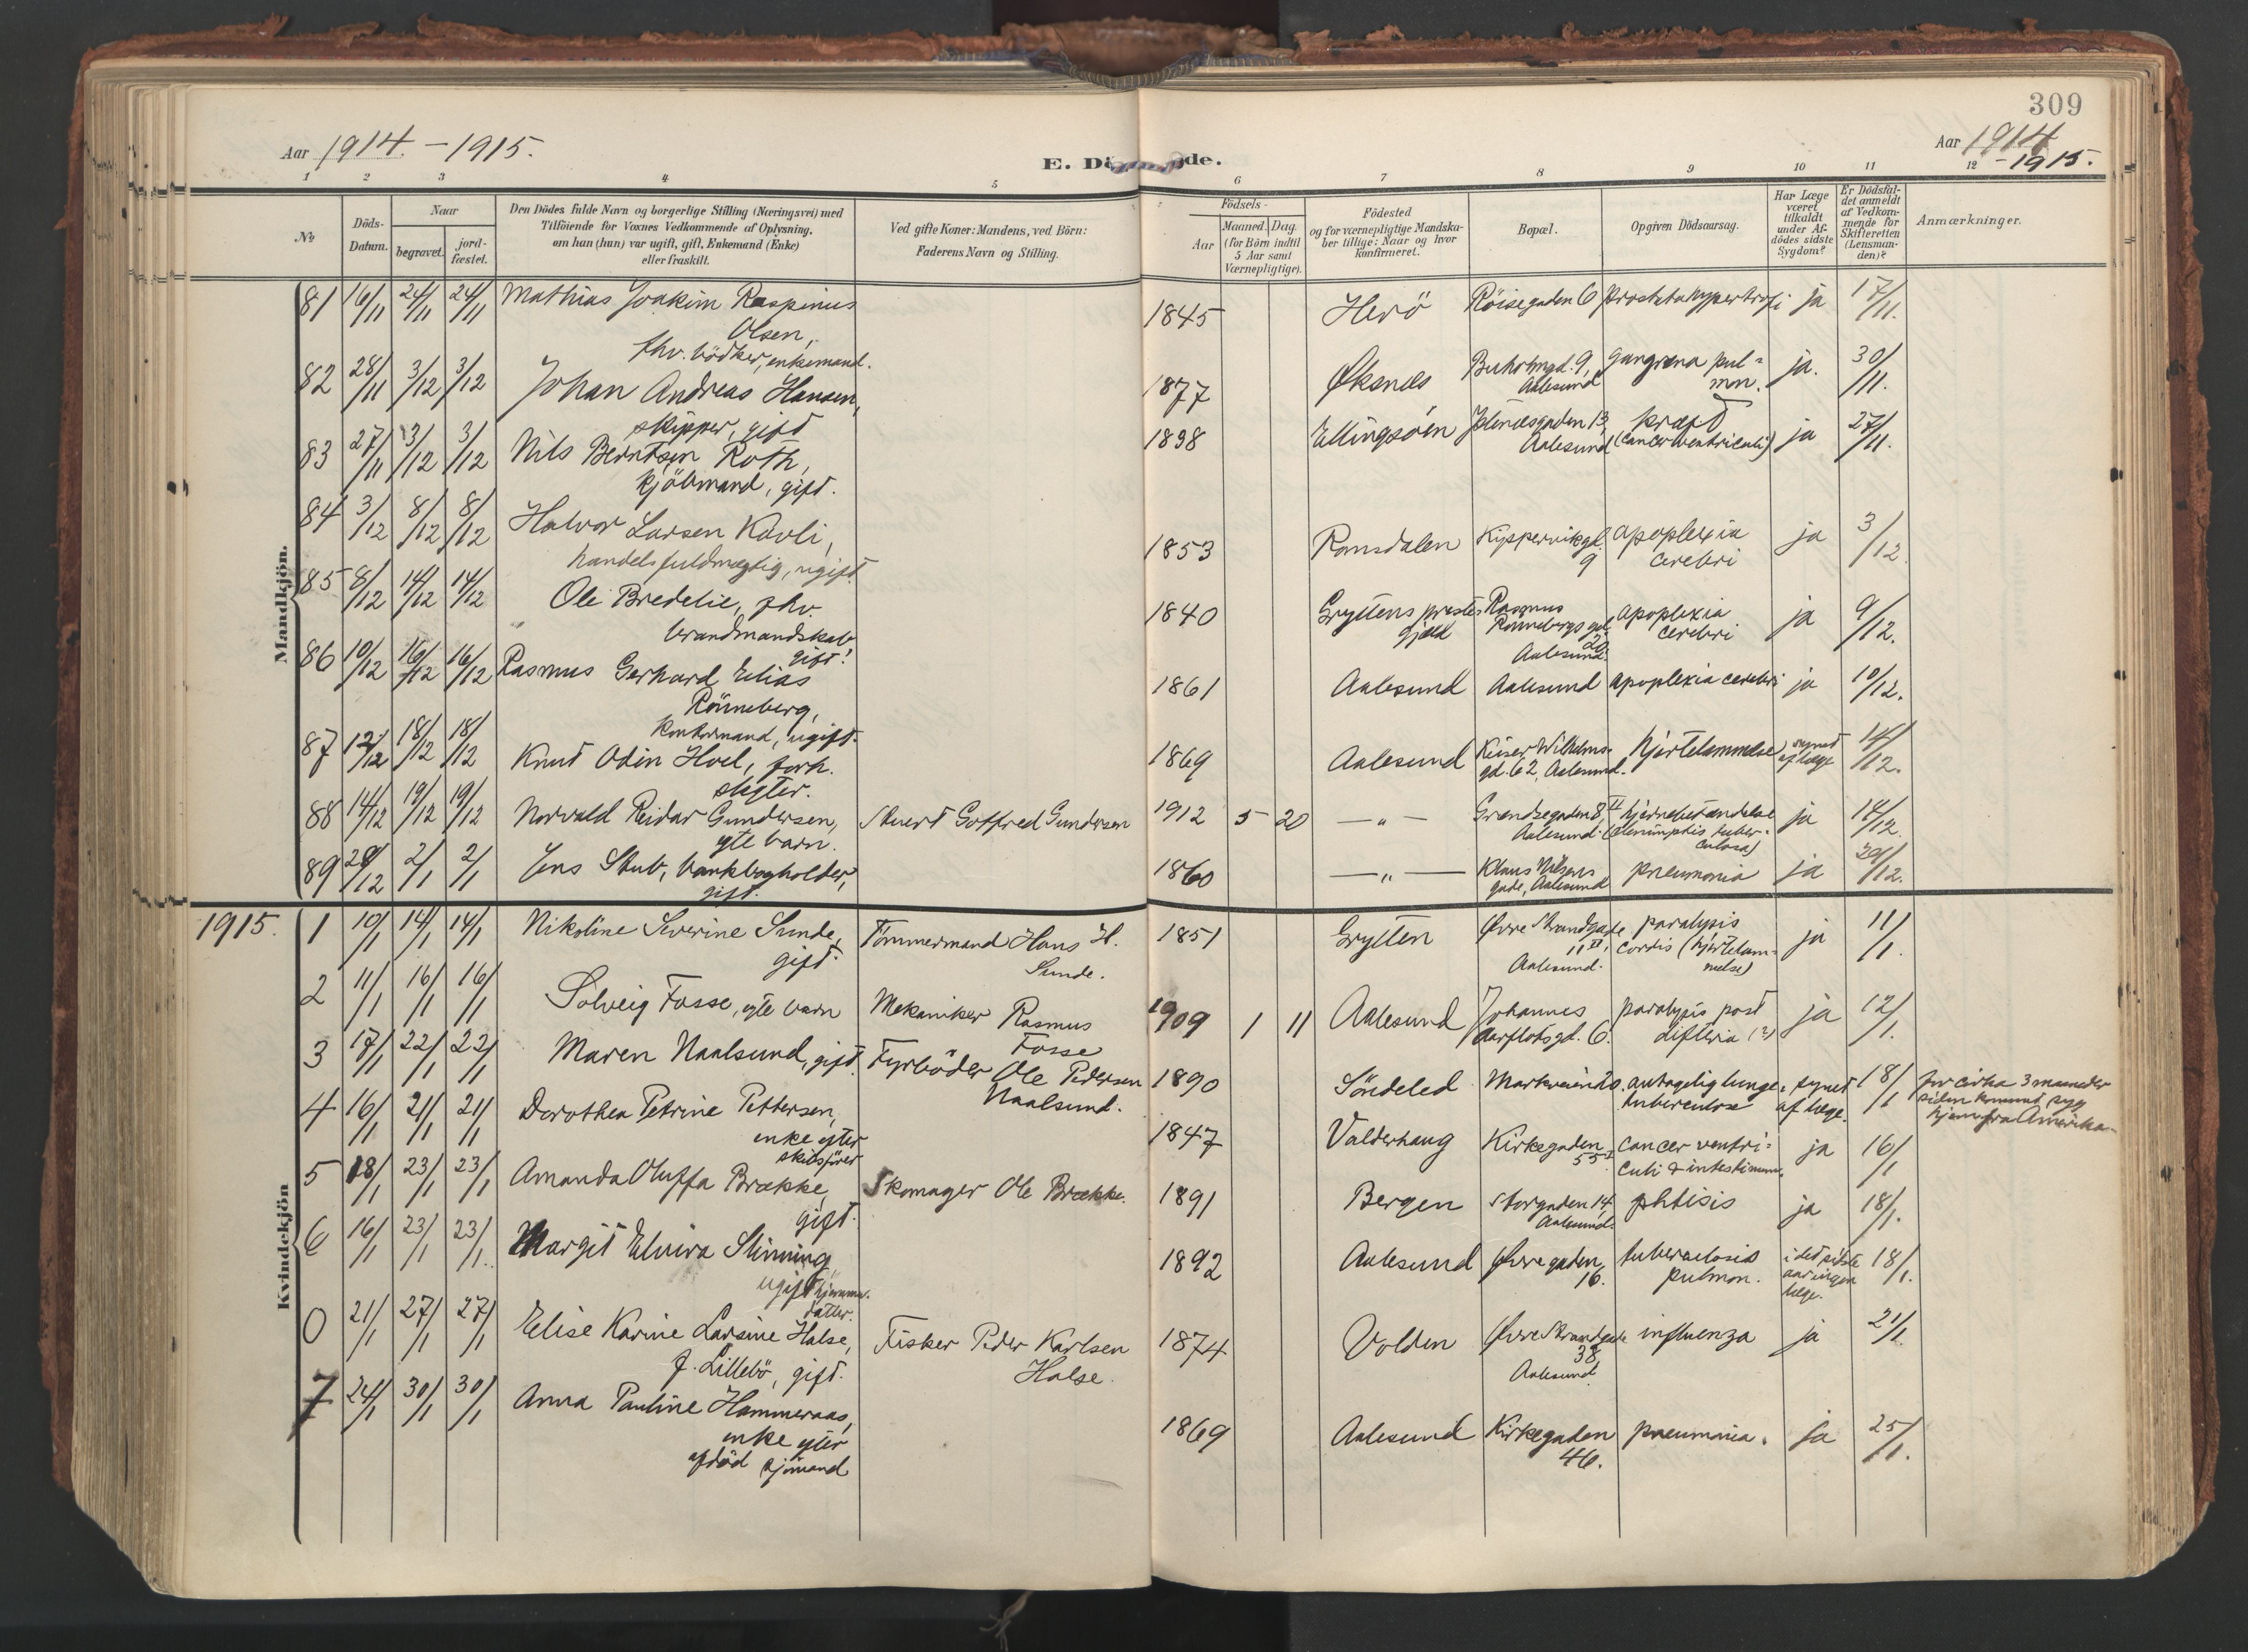 309
Aar 1914. - 1915.
E. Dö de.
Aar 1914
- 1915.
1 2 3 4 5 6 7 8 9 10 11 12
No
Döds-
Datum.
Naar
begravet.
jord-
fæstet.
Den Dödes fulde Navn og borgerlige Stilling (Næringsvei) med
Tilföiende for Voxnes Vedkommende af Oplysning,
om han (hun) var ugift, gift, Enkemand (Enke)
eller fraskilt.
Ved gifte Koner: Mandens, ved Börn:
Faderens Navn og Stilling.
Födsels-
Aar
Maaned. Dag.
(for Börn indtil
5 Aar samt
Værnepligtige).
Födested
og for værnepligtige Mandska-
ber tillige: Naar og hvor
konfirmeret.
Bopæl.
Opgiven Dödsaarsag.
Har Læge
været
tilkaldt
under Af-
dödes sidste
Sygdom?
Er Dödsfal-
det anmeldt
af Vedkom-
mende for
Skifteretten
(Lensman-
den)?
Anmærkninger.
Mandkjön.
81 16/11 24/11 24/11 Mathias Joakim Raspinus 1845 Herö Röisegaden 6 prostatahypertrofi ja 17/11.
Olsen,
fhv. bödker, enkemand.
82 28/11 3/12 3/12 Johan Andreas Hansen, 1877 Øksnes Buholmgd. 9, gangræna pul= ja. 30/11.
skipper, gift Aalesund mon.
83 27/11 3/12 3/12 Nils Berntsen Roth, 1838 Ellingsöen gaden 13, kræft ja 27/11.
kjöbmand, gift. Aalesund (cancer ventriculi)
84 3/12 8/12 8/12 Halvor Larsen Kavli, 1853 Romsdalen Kippervikgd. apoplexia ja 3/12.
handelsfuldmægtig, ugift. 9 cerebri
85 8/12 14/12 14/12 Ole Bredelie, fhv. 1840 Gryttens preste= Rasmus apoplexia ja 9/12.
brandmandskab gjæld Rönnebergs gd. cerebri
gift. 22 Aalesund.
86 10/12 16/12 16/12 Rasmus Gerhard Elias 1861 Aalesund Aalesund apoplexia cerebri ja 10/12.
Rönneberg,
kontormand, ugift.
87 12/12 18/12 18/12 Knut Odin Hoel, forh. 1869 Aalesund Keiser Wilhelms= hjertelammelse synet 14/12.
slagter. gd. 62, Aalesund. af læge
88 14/12 19/12 19/12 Norvald Reidar Gundersen, Stuert Gotfred Gundersen 1912 5 20 — " — Grændsegaden 8, II hjernebetændelse ja 14/12.
egte barn. Aalesund. tuber=
culosa)
89 29/12 2/1 2/1 Jens Stub, bankbogholder, 1860 — " — Klaus Nilsens pneumonia ja 29/12.
gift. gade, Aalesund
1915.
Kvindekjön
1 10/1 14/1 14/1 Nikoline Severine Sunde, Tömmermand Hans H. 1851 Grytten Övre Strandgade paralysis ja 11/1.
gift. Sunde. 11 II, cordis (hjertelam=
Aalesund. melse)
2 11/1 16/1 16/1 Solveig Fosse, egte barn Mekaniker Rasmus 1909 1 11 Aalesund Johannes paralysis post ja 12/1.
Fosse Aarflotsgd. 6. difteria (?)
3 17/1 22/1 22/1 Maren Naalsund, gift. Fyrböder Ole Pedersen 1890 Söndeled antagelig lunge= synet 18/1 for cirka 3 maaneder
Naalsund. tuberculose af læge. siden kommet syg
hjem fra Amerika
4 16/1 21/1 21/1 Dorothea Petrine Pettersen, 1847 Valderhaug Kirkegaden cancer ventri= ja 16/1
enke efter 55 I. culi & intestinum.
skibsförer
5 18/1 23/1 23/1 Amanda Oluffa Brække, Skomager Ole Brække. 1891 Bergen Storgaden 14, phtisis ja 18/1.
gift. Aalesund.
6 16/1 23/1 23/1 Margit Elvira Slinning 1892 Aalesund Övregaden tuberculosis i det sidste 18/1.
ugift, hjemmev. 16. pulmon. aar ingen
datter. læge.
0 21/1 27/1 27/1 Elise Karine Larsine Halse, Fisker Peder Karlsen 1874 Volden Övre Strandgade influenza ja 21/1.
f. Lillebö, gift. Halse. 38,
Aalesund
7 24/1 30/1 30/1 Anna Pauline Hammeraas, 1869 Aalesund Kirkegaden pneumonia. ja 25/1.
enke efter 46.
afdöd sjömand